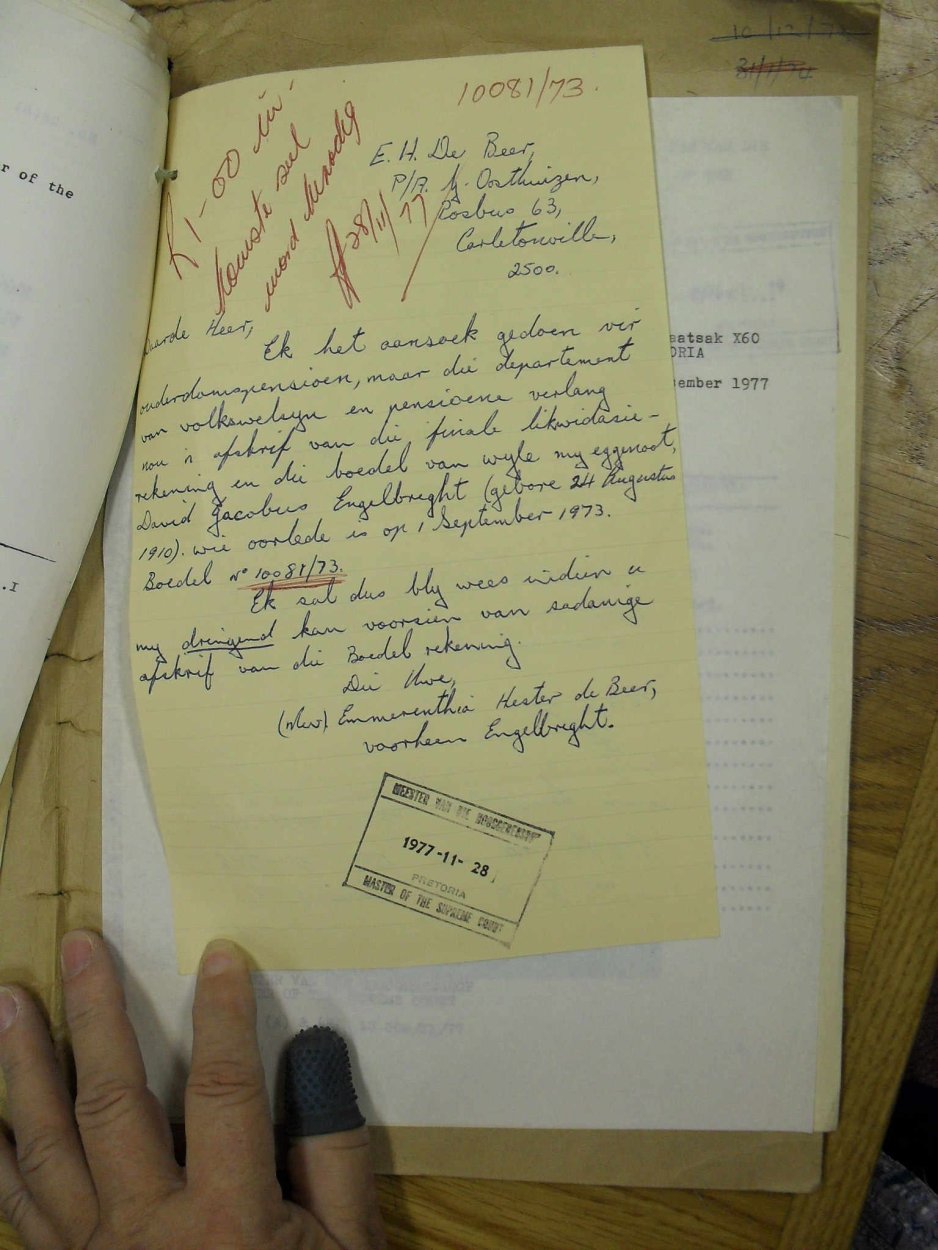 10/12/73
r of the
.I
10081/73.
R1-00 in-
komste sel
word benodig
28/11/77
E. H. De Beer,
P/A. J. Oosthuizen,
Posbus 63,
Carletonville,
2500.
aarde Heer,
Ek het aansoek gedoen vir
ouderdomspensioen, maar die departement
van volkswelsyn en pensioene verlang
nou 'n afskrif van die finale likwidasie-
rekening en die boedel van wyle my eggenoot,
David Jacobus Engelbreght (gebore 24 Augustus
1910). wie oorlede is op 1 September 1973.
Boedel No 10081/73.
Ek sal dus bly wees indien u
my dringend kan voorsien van sodanige
afskrif van die Boedel rekening.
Die Uwe,
(Mev) Emmerenthia Hester de Beer,
voorheen Engelbreght.
MEESTER VAN DIE HOOGGEREGSHOF
1977-11-28
PRETORIA
MASTER OF THE SUPREME COURT
aatsak X60
ORIA
ember 1977